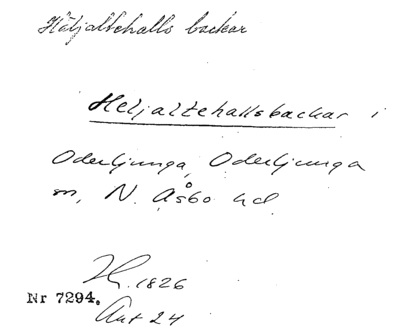 Häljaltehalls backar
Heljaltehallsbackar i
Oderljunga, Oderljunga
sn, N. Åsbo hd
H. 1826
Nr 7294.
Ant 24